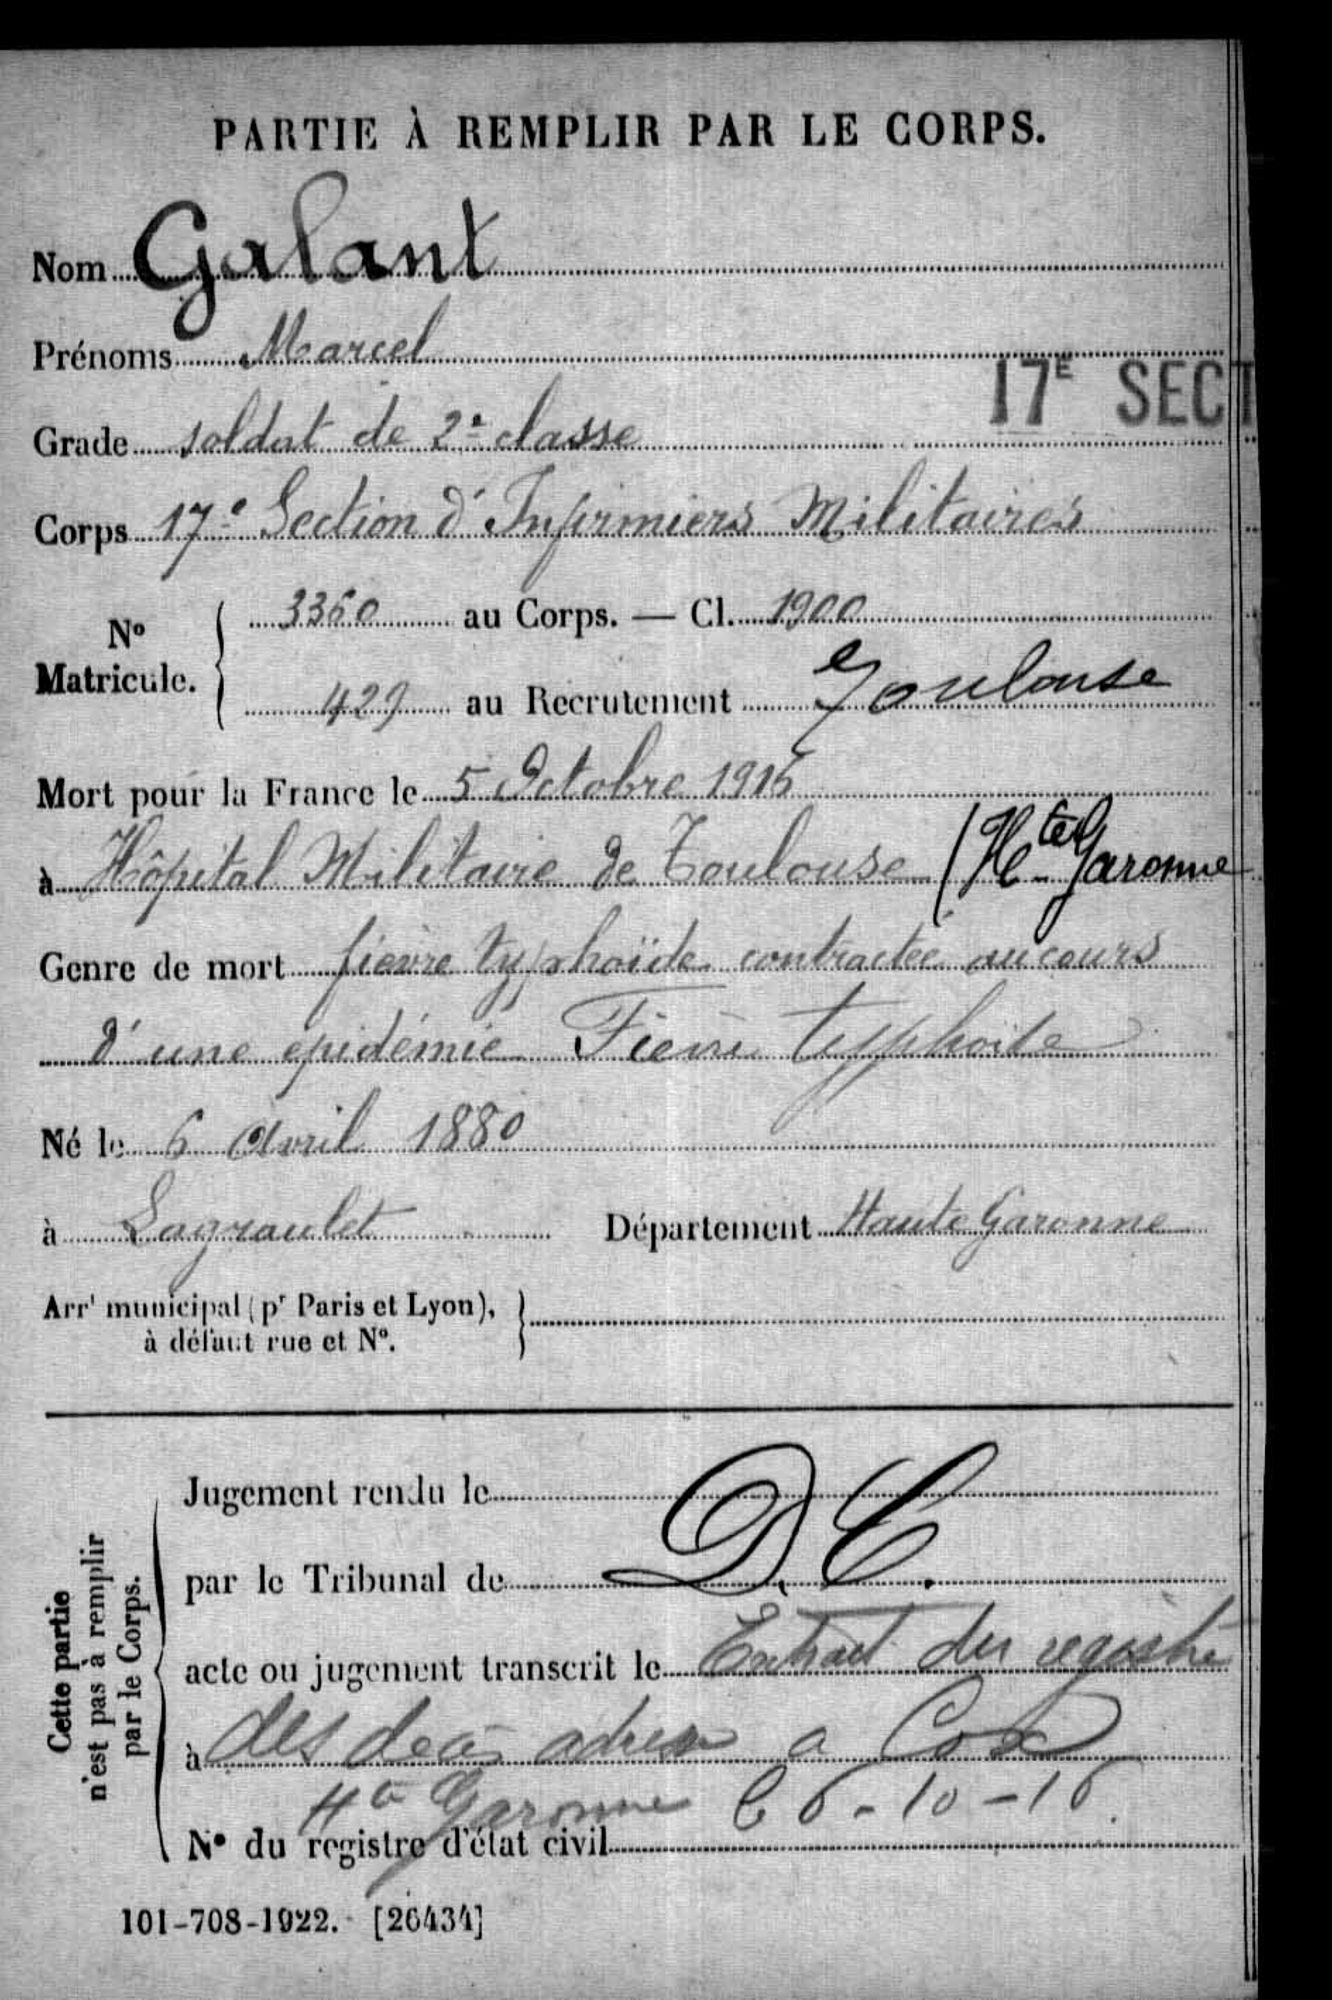 PARTIE À REMPLIR PAR LE CORPS.
Nom Galant
Prénoms Marcel
17E SECT
Grade soldat de 2e classe
Corps 17e Section d'Infirmiers Militaires
No Matricule. 3360 au Corps. — Cl. 1900
429 au Recrutement Toulouse
Mort pour la France le 5 Octobre 1916
à Hôpital Militaire de Toulouse (Hte Garonne
Genre de mort fièvre typhoïde contractée au cours
d'une épidémie Fièvre typhoïde
Né le 6 Avril 1880
à Lagraulet Département Haute Garonne
Arrt municipal (pr Paris et Lyon),
à défaut rue et No.
Cette partie
n'est pas à remplir
par le Corps.
Jugement rendu le
par le Tribunal de D.C.
acte ou jugement transcrit le Extrait du registre
à des décès a Cox
Hte Garonne 6-10-16
No du registre d'état civil
101-708-1922. [26434]